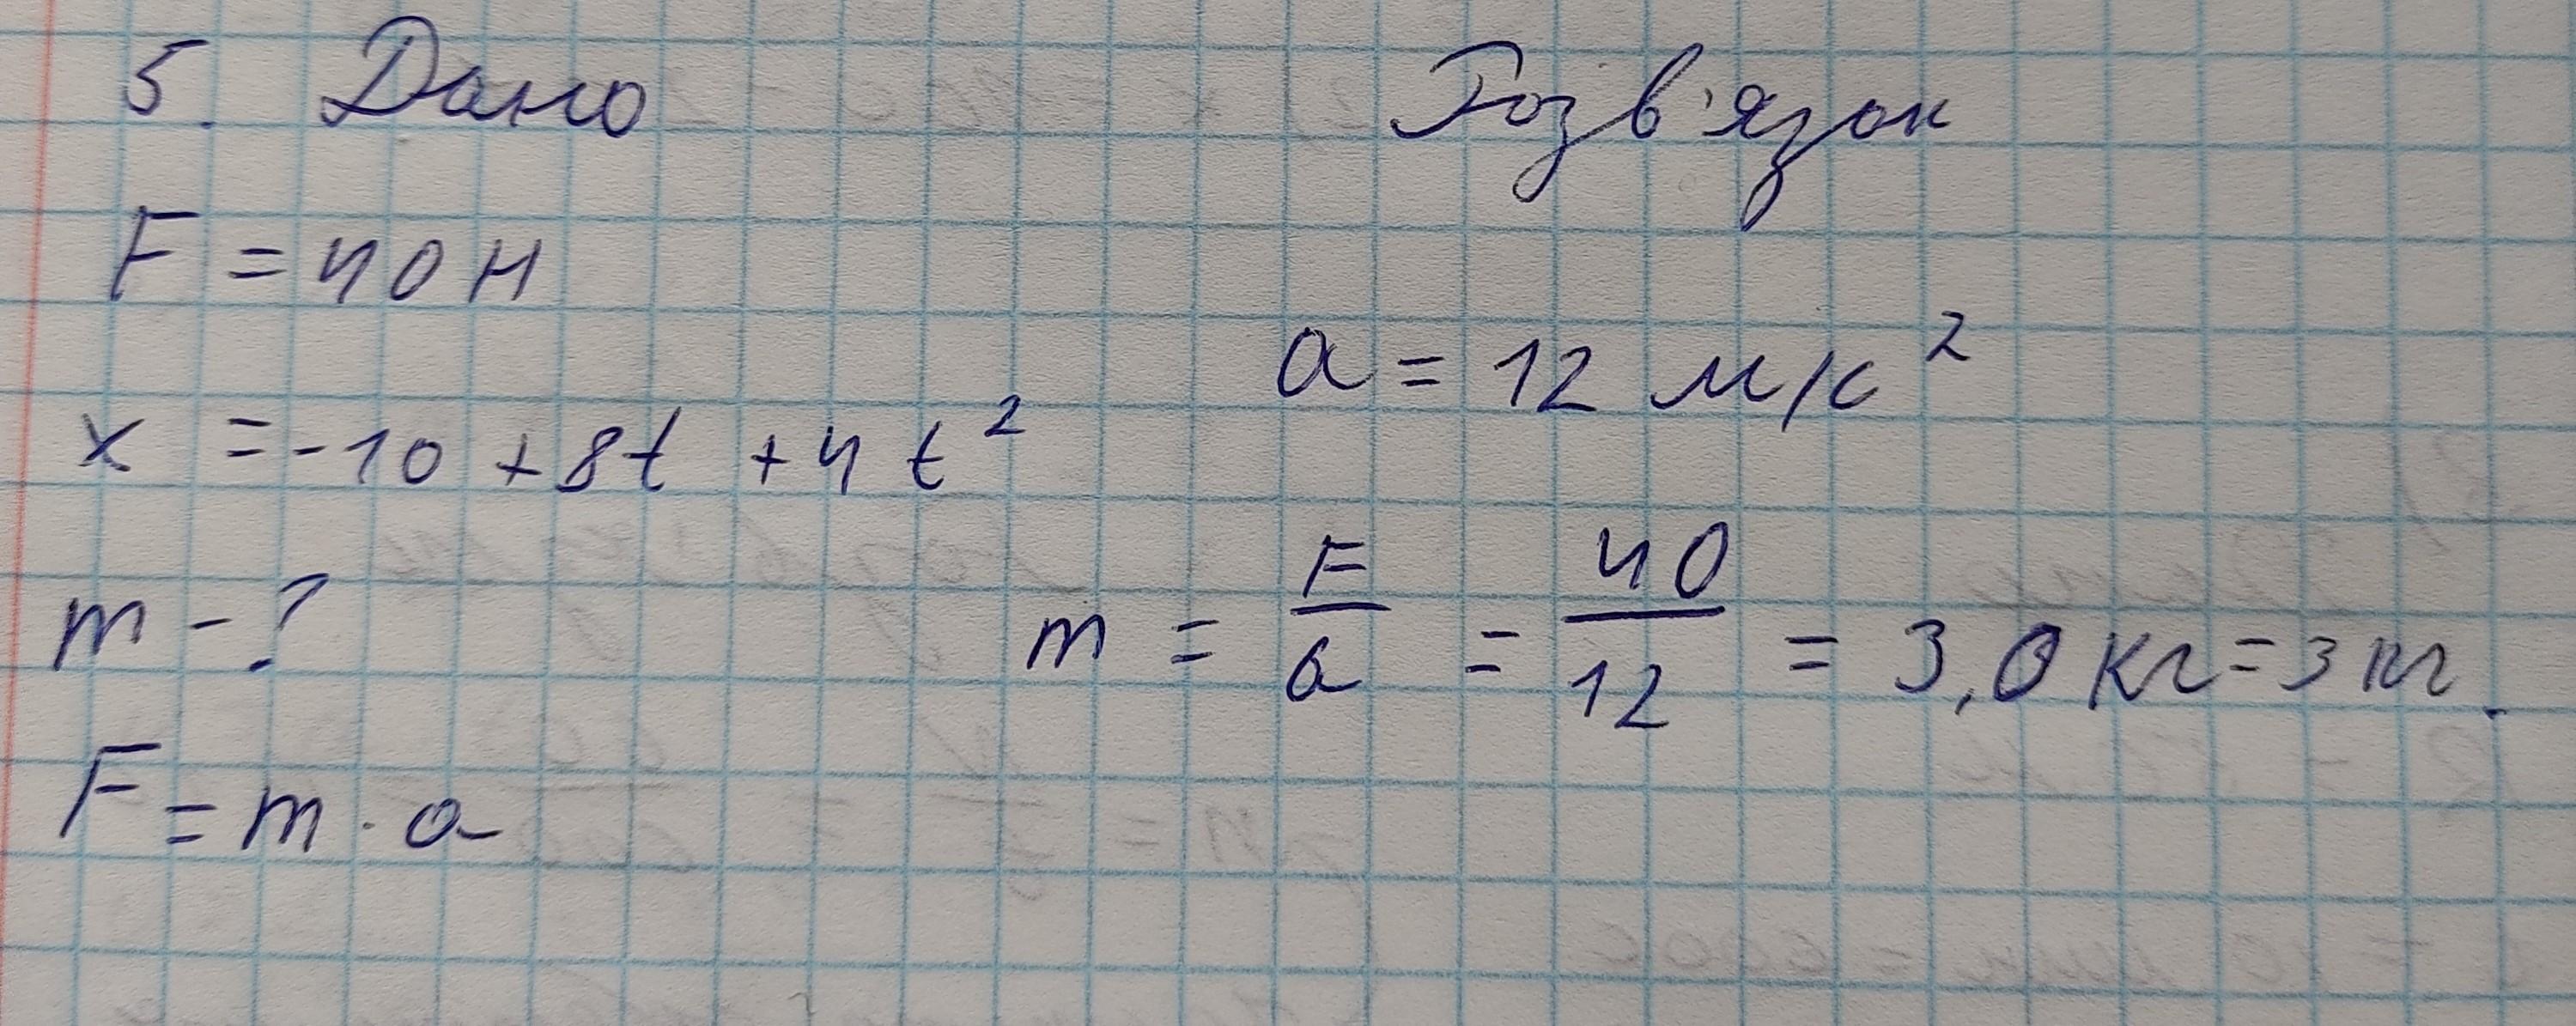 5. Дано
Розв'язок
F = 40 Н
a = 12 м/с²
x = -10 + 8t + 4t²
m - ?
m = F/a = 40/12 = 3,0 кг = 3 кг.
F = m · a